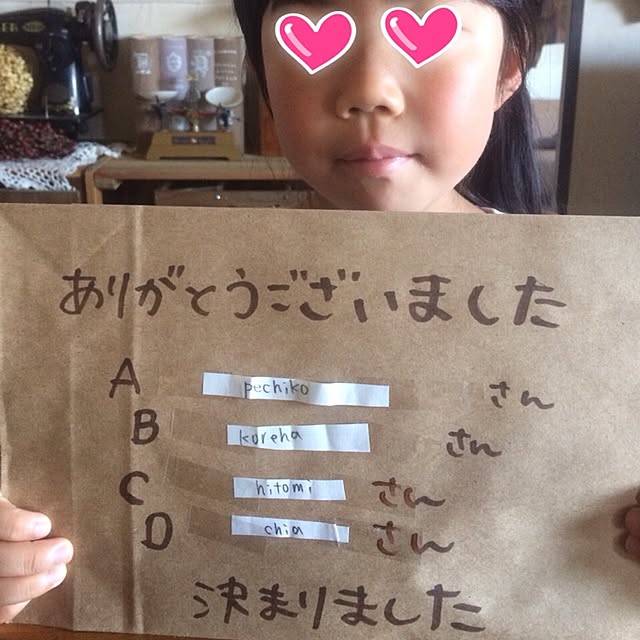 ありがとうございました
A pechiko さん
B kureha さん
C hitomi さん
D chia さん
決まりました